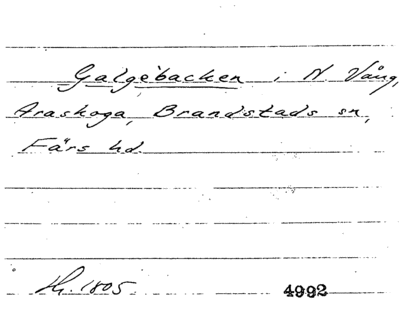 Galgebacken i N Vång,
Araskoga, Brandstads sn,
Färs hd.
Hy. 1805. 4992